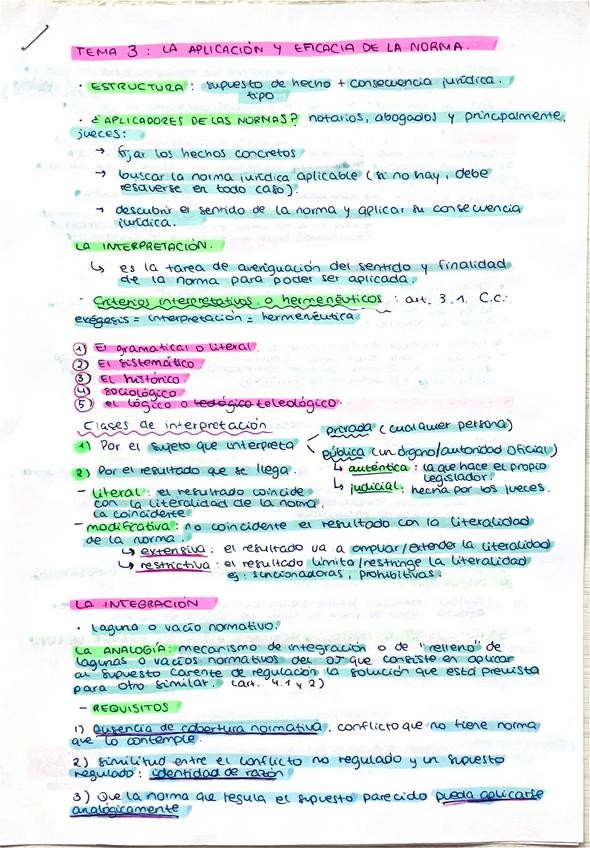 TEMA 3 : LA APLICACIÓN Y EFICACIA DE LA NORMA.
· ESTRUCTURA : supuesto de hecho + consecuencia jurídica.
tipo
· ¿APLICADORES DE LAS NORMAS? notarios, abogados y principalmente
jueces:
→ fijar los hechos concretos
→ buscar la norma jurídica aplicable (si no hay, debe
resolverse en todo caso).
→ descubrir el sentido de la norma y aplicar su consecuencia
jurídica.
LA INTERPRETACIÓN.
↳ es la tarea de averiguación del sentido y finalidad
de la norma para poder ser aplicada.
- Criterios interpretativos o hermenéuticos : art. 3.1. C.c:
exégesis = interpretación = hermenéutica
1) El gramatical o literal.
2) El sistemático
3) El histórico
4) sociológico
5) el lógico o teológico teleológico.
Clases de interpretación
1) Por el sujeto que interpreta < privada (cualquier persona)
pública (un órgano/autoridad oficial)
↳ auténtica : la que hace el propio
legislador.
↳ judicial : hecha por los jueces.
2) Por el resultado que se llega.
- literal : el resultado coincide
con la literalidad de la norma.
La coincidente
- modificativa : no coincidente el resultado con la literalidad
de la norma.
↳ extensiva : el resultado va a ampliar/extender la literalidad
↳ restrictiva : el resultado limita/restringe la literalidad
eg: sancionadoras, prohibitivas.
LA INTEGRACIÓN
· Laguna o vacío normativo.
LA ANALOGÍA: mecanismo de integración o de "relleno" de
lagunas o vacíos normativos del OJ que consiste en aplicar
al supuesto carente de regulación la solución que está prevista
para otro similar. (art. 4.1 y 2)
- REQUISITOS
1) Ausencia de cobertura normativa. conflicto que no tiene norma
que lo contemple.
2) Similitud entre el conflicto no regulado y un supuesto
regulado : identidad de razón
3) Que la norma que regula el supuesto parecido pueda aplicarse
analógicamente